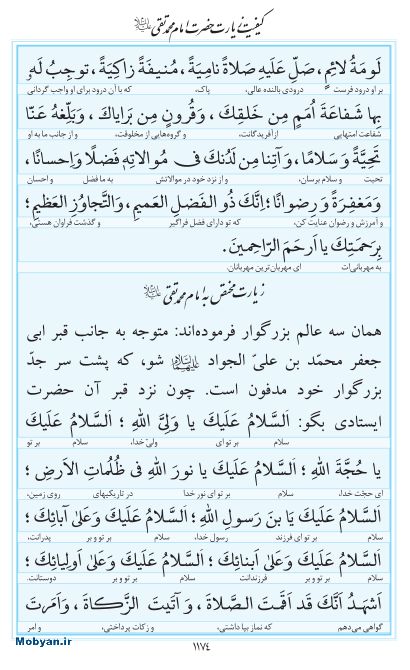 کیفیّت زیارت حضرت امام محمّد تقی علیه‌السلام
لَومَةُ لائِمٍ، صَلِّ عَلَیهِ صَلاةً نامِیَةً، زاکِیَةً مُنیفَةً، توجِبُ لَهُ
بر او درود فرست درودی بالنده عالی، پاک، که با آن درود برای او واجب گردانی
بِها شَفاعَةَ اُمَمٍ مِن خَلقِكَ، وَقُرونٍ مِن بَرایاكَ، وَبَلِّغهُ عَنّا
شفاعت امتهایی از آفریدگانت، و گروه‌هایی از مخلوقت، و از جانب ما به او
تَحِیَّةً وَ سَلامًا، وَآتِنا مِن لَدُنكَ فی مُوالاتِهٖ فَضلًا وَاِحسانًا،
تحیت و سلام برسان، و از نزد خود در موالاتش به ما فضل و احسان
وَمَغفِرَةً وَ رِضوانًا؛ اِنَّكَ ذُو الفَضلِ العَمیمِ، وَالتَّجاوُزِ العَظیمِ؛
و آمرزش و رضوان عنایت کن، که تو دارای فضل فراگیر و گذشت فراوان هستی،
بِرَحمَتِكَ یا اَرحَمَ الرّاحِمینَ.
به مهربانی‌ات ای مهربان‌ترین مهربانان.
زیارت مختص به امام محمّد تقی علیه‌السلام
همان سه عالم بزرگوار فرموده‌اند: متوجه به جانب قبر ابی
جعفر محمّد بن علیّ الجواد علیهماالسلام شو، که پشت سر جدّ
بزرگوار خود مدفون است. چون نزد قبر آن حضرت
ایستادی بگو: اَلسَّلامُ عَلَیكَ یا وَلِیَّ اللهِ؛ اَلسَّلامُ عَلَیكَ
سلام بر تو ای ولیّ خدا، سلام بر تو
یا حُجَّةَ اللهِ؛ اَلسَّلامُ عَلَیكَ یا نورَ اللهِ فی ظُلُماتِ الاَرضِ؛
ای حجّت خدا، سلام بر تو ای نور خدا در تاریکیهای روی زمین،
اَلسَّلامُ عَلَیكَ یَا بنَ رَسولِ اللهِ؛ اَلسَّلامُ عَلَیكَ وَعَلیٰ آبائِكَ؛
سلام بر تو ای فرزند رسول خدا، سلام بر تو و بر پدرانت،
اَلسَّلامُ عَلَیكَ وَعَلیٰ اَبنائِكَ؛ اَلسَّلامُ عَلَیكَ وَعَلیٰ اَولِیائِكَ؛
سلام بر تو و بر فرزندانت سلام بر تو و بر دوستانت.
اَشهَدُ اَنَّكَ قَد اَقَمتَ الصَّلاةَ، وَ آتَیتَ الزَّكاةَ، وَاَمَرتَ
گواهی می‌دهم که نماز بپا داشتی، و زکات پرداختی، و امر
۱۱۷۴
Mobyan.ir